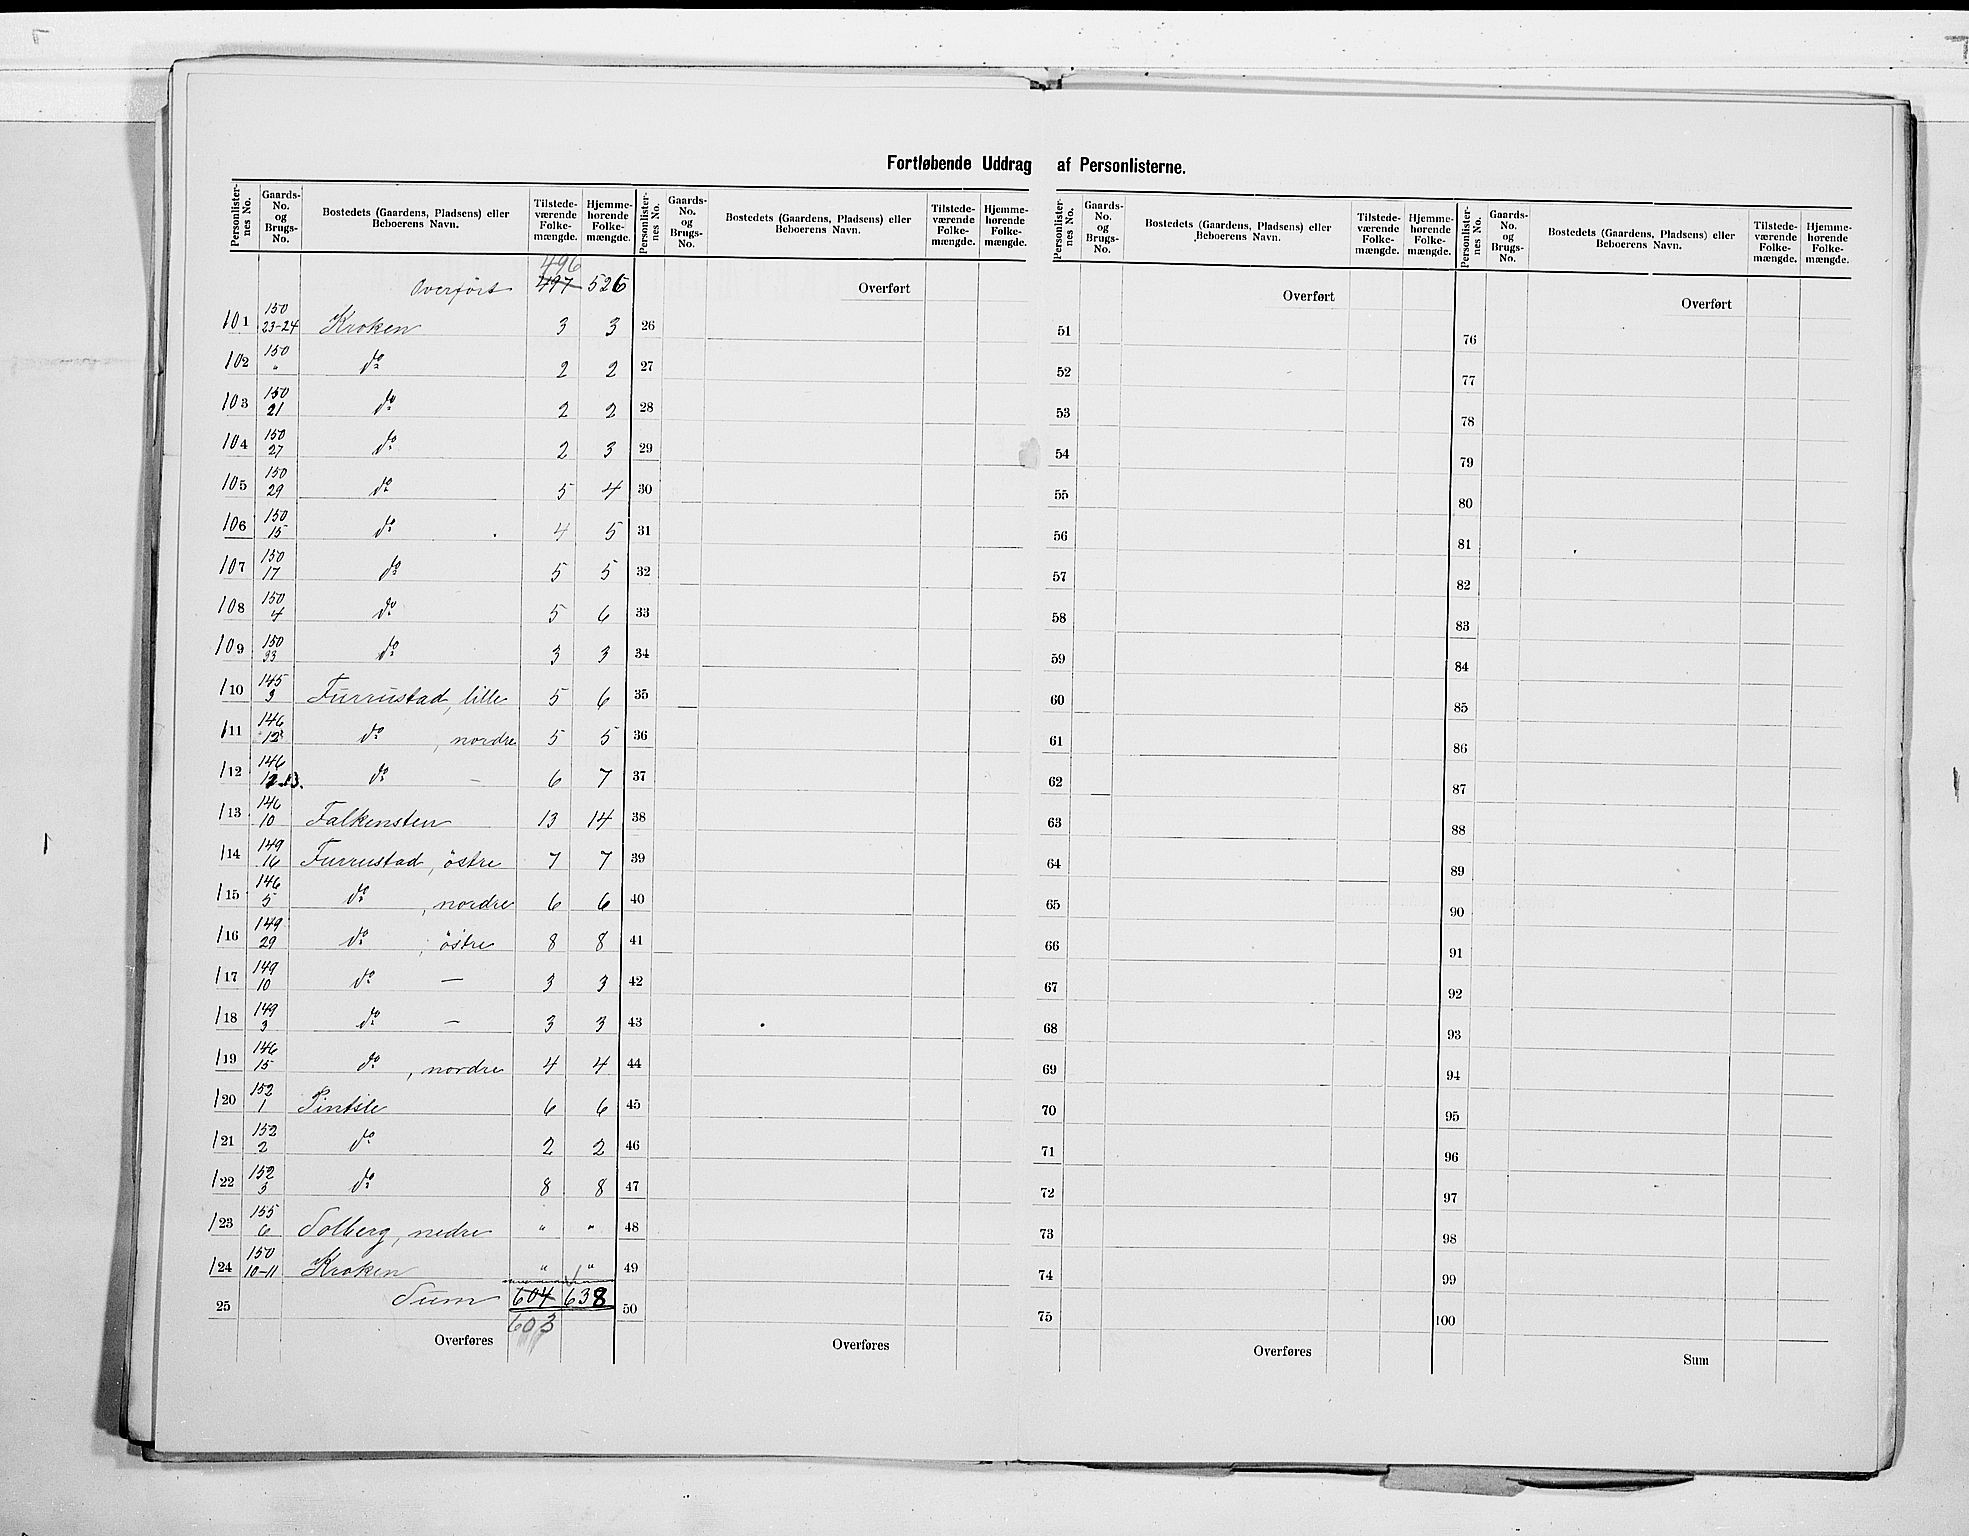 Fortløbende Uddrag af Personlisterne.
Personlister-nes No. Gaards-No. og Brugs-No. Bostedets (Gaardens, Pladsens) eller Beboerens Navn. Tilstede-værende Folke-mængde. Hjemme-hørende Folke-mængde.
496
Overført 497 526
101 150 23-24 Kroken 3 3
102 150 " do 2 2
103 150 21 do 2 2
104 150 27 do 2 3
105 150 29 do 5 4
106 150 15 do 4 5
107 150 17 do 5 5
108 150 4 do 5 6
109 150 33 do 3 3
110 145 3 Furrustad, lille 5 6
111 146 12 do , nordre 5 5
112 146 12-13. do – 6 7
113 146 10 Falkensten 13 14
114 149 16 Furrustad, östre 7 7
115 146 5 do , nordre 6 6
116 149 29 do , östre 8 8
117 149 10 do — 3 3
118 149 3 do — 3 3
119 146 15 do , nordre 4 4
120 152 1 6 6
121 152 2 do 2 2
122 152 3 do 8 8
123 155 6 Solberg, nedre " "
124 150 10-11 Kroken " "
25 Sum 604 638
603
Overføres
Personlister-nes No. Gaards-No. og Brugs-No. Bostedets (Gaarden, Pladsens) eller Beboerens Navn. Tilstede-værende Folke-mængde. Hjemme-hørende Folke-mængde.
Overført
26
27
28
29
30
31
32
33
34
35
36
37
38
39
40
41
42
43
44
45
46
47
48
49
50
Overføres
Personlister-nes No. Gaards-No. og Brugs-No. Bostedets (Gaarden, Pladsens) eller Beboerens Navn. Tilstede-værende Folke-mængde. Hjemme-hørende Folke-mængde.
Overført
51
52
53
54
55
56
57
58
59
60
61
62
63
64
65
66
67
68
69
70
71
72
73
74
75
Overføres
Personlister-nes No. Gaards-No. og Brugs-No. Bostedets (Gaarden, Pladsens) eller Beboerens Navn. Tilstede-værende Folke-mængde. Hjemme-hørende Folke-mængde.
Overført
76
77
78
79
80
81
82
83
84
85
86
87
88
89
90
91
92
93
94
95
96
97
98
99
100
Sum